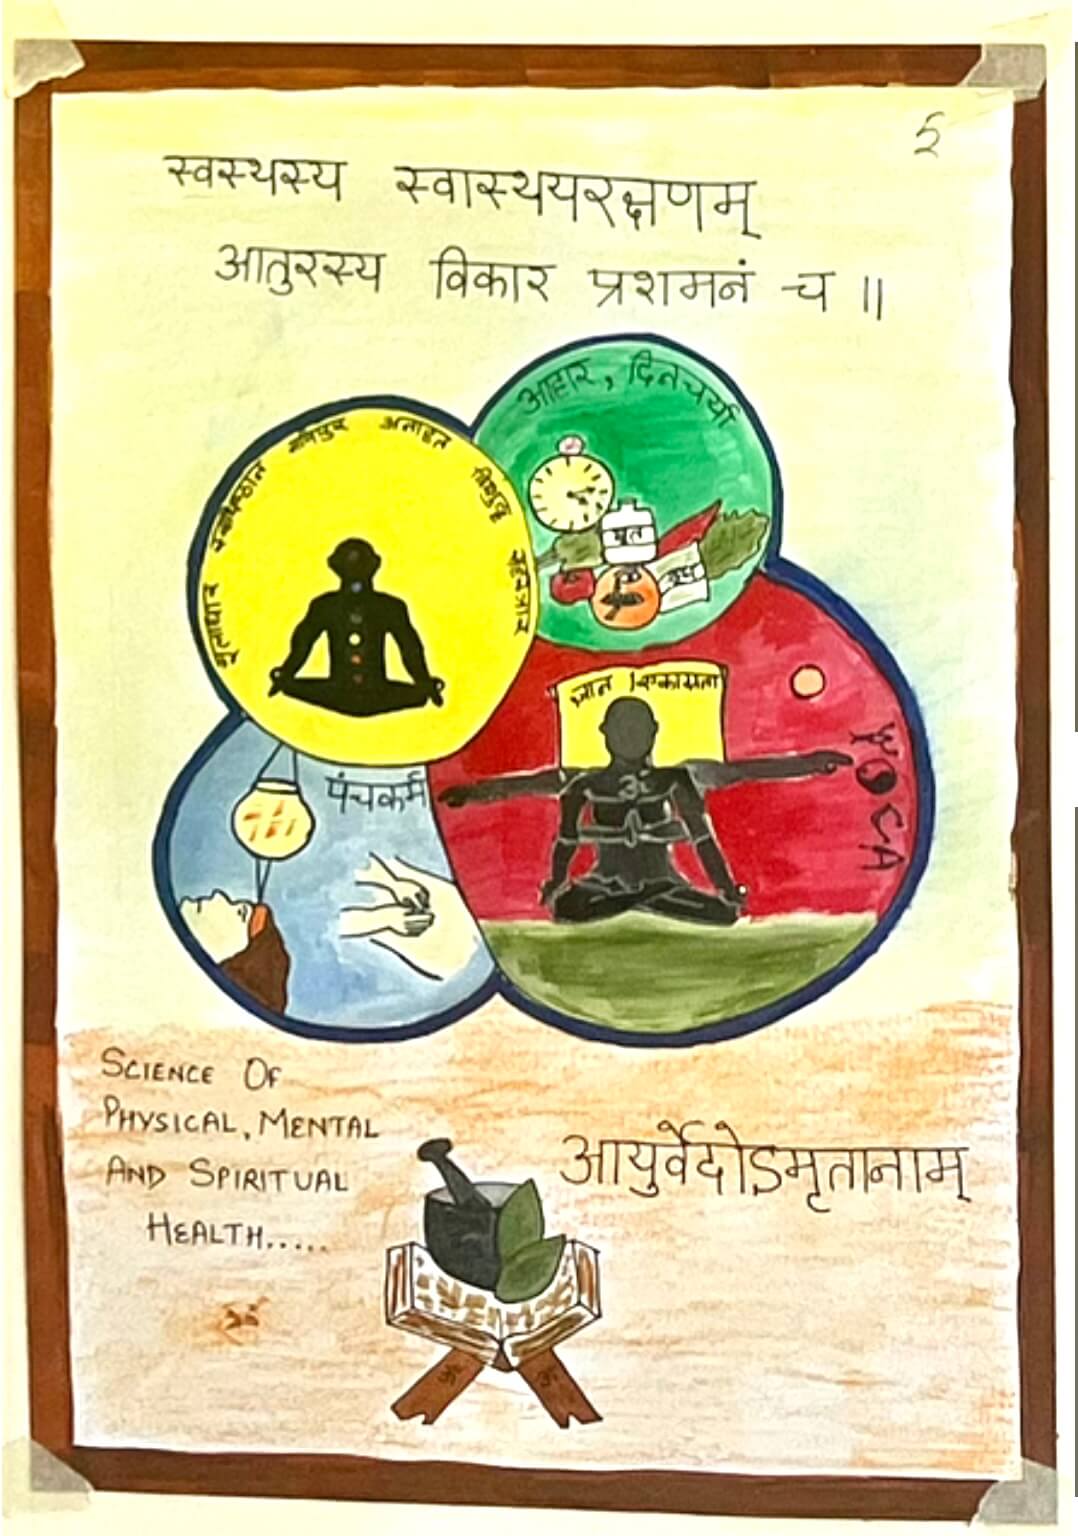 स्वस्थस्य स्वास्थयरक्षणम्
आतुरस्य विकार प्रशमनं च ॥
आहार, दिनचर्या
मूलाधार स्वाधिष्ठान मणिपुर अनाहत विशुद्ध सहस्त्रार
घृत
दूध
ज्ञान
ॐ
YOGA
पंचकर्म
SCIENCE OF
PHYSICAL, MENTAL
AND SPIRITUAL
HEALTH.....
आयुर्वेदोऽमृतानाम्